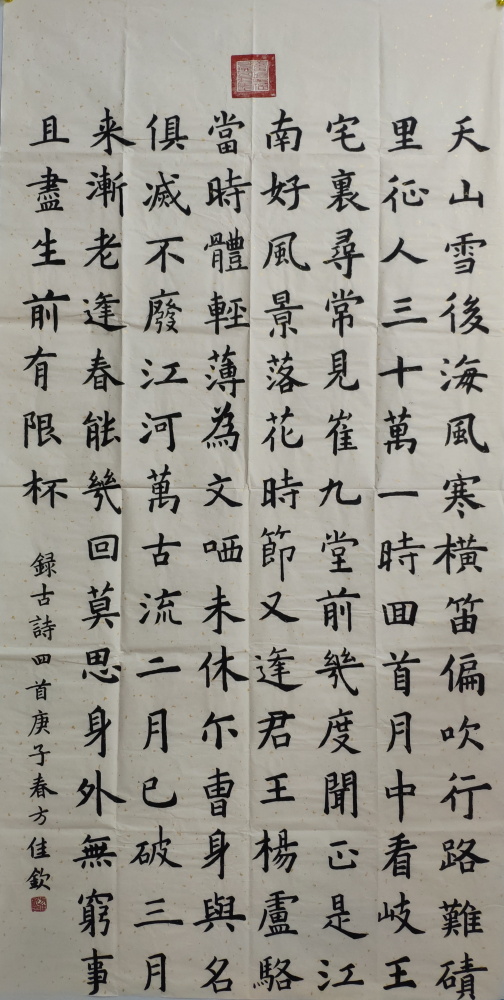 天山雪後海風寒橫笛偏吹行路難磧
里征人三十萬一時回首月中看岐王
宅裏尋常見崔九堂前幾度聞正是江
南好風景落花時節又逢君王楊盧駱
當時體輕薄為文哂未休尒曹身與名
俱滅不廢江河萬古流二月已破三月
来漸老逢春能幾回莫思身外無窮事
且盡生前有限杯
録古詩四首庚子春方佳欽